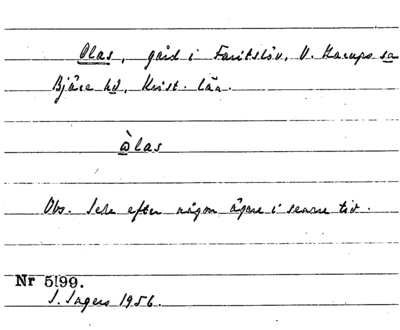 Olas, gård i Faritslöv, V. Karups sn
Bjäre hd, Krist. län.
òlas
Obs. Icke efter någon ägare i senare tid.
Nr 5199.
I. Ingers 1956.